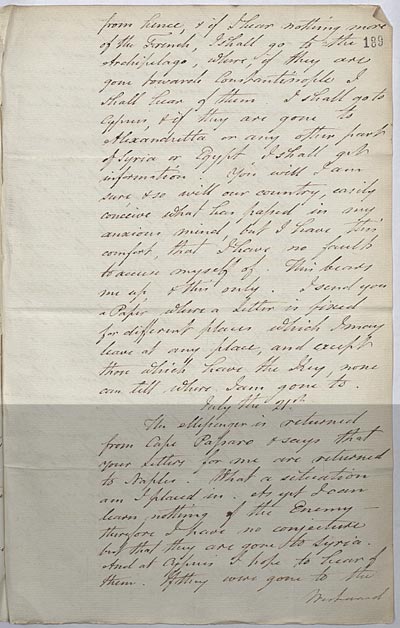 from hence, & if I hear nothing more
189
of the French, I shall go to the
Archipelago, where, if they are
gone towards Constantinople I
shall hear of them. I shall go to
Cyprus, & if they are gone to
Alexandretta or any other part
of Syria or Egypt, I shall get
information. You will I am
sure, & so will our country, easily
conceive what has passed in my
anxious mind, but I have this
comfort, that I have no fault
to accuse myself of. This bears
me up, & this only. I send you
a Paper, where a Letter is fixed
for different places which I may
leave at any place, and except
those which have the Key, none
can tell where I am gone to.
July the 21st.
The Messenger is returned
from Cape Passaro & says that
your Letters for me are returned
to Naples. What a situation
am I placed in. As yet I can
learn nothing of the Enemy —
therefore I have no conjecture
but that they are gone to Syria.
And at Cyprus I hope to hear of
them. If they were gone to the
Westward